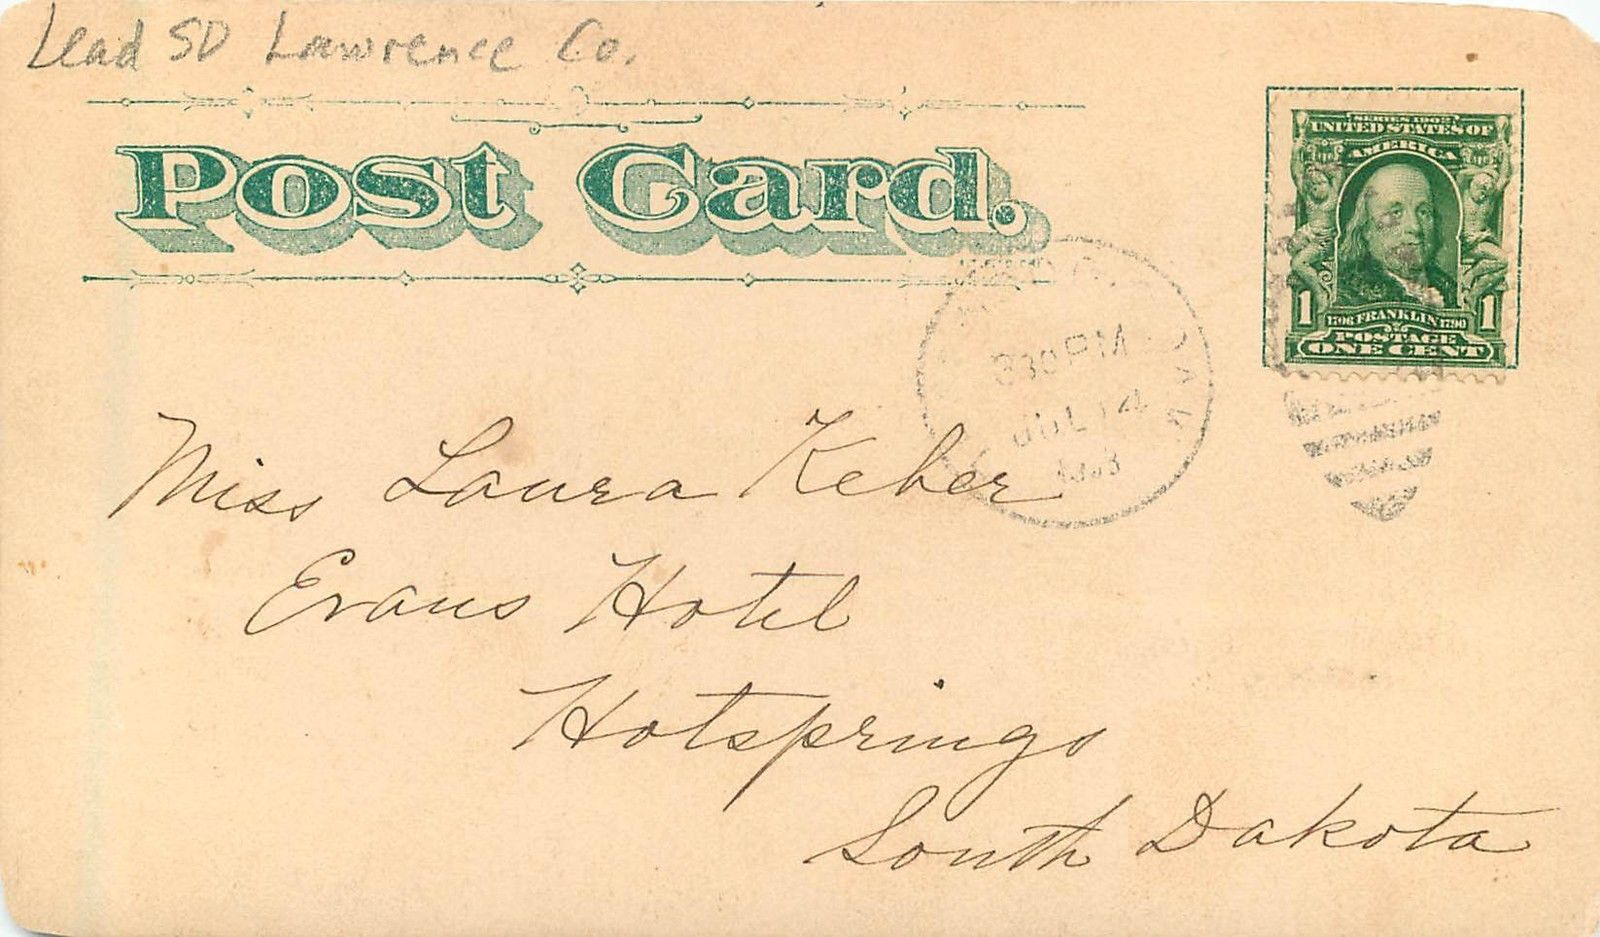 Lead SD Lawrence Co.
Post Card.
SERIES 1902
UNITED STATES OF
AMERICA
1 1
1706 FRANKLIN 1790
POSTAGE
ONE CENT
330 PM
JUL 14
Miss Laura Keher
Evans Hotel
Hotsprings
South Dakota